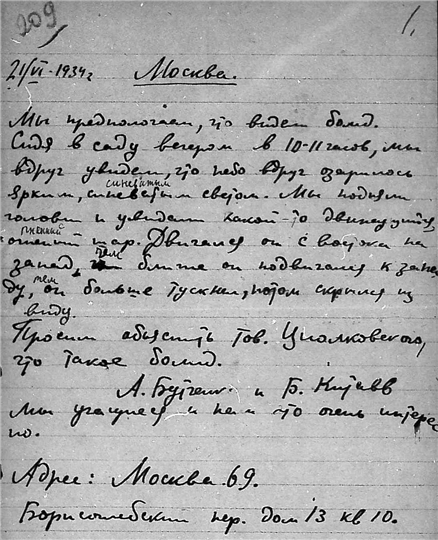 209
1.
21/VI-1934г Москва.
Мы предпологаем, что видем болид.
Сидя в саду вечером в 10-11 часов, мы
вдруг увидем, что небо вдруг озарилось
синеватым
ярким, светом. Мы подняли
головы и увидали какой-то движущийся
огненный
шар. Двигался он с востока на
чем
запад, ближе он подвигался к запа-
тем
ду, он больше тускнел, потом скрылся из
виду.
Просим объяснить тов. Циолковского,
что такое болид.
А. и Б. Китаев
Мы учащиеся и нам это очень интерес
но.
Адрес: Москва 69.
Борисоглебский пер. дом 13 кв 10.